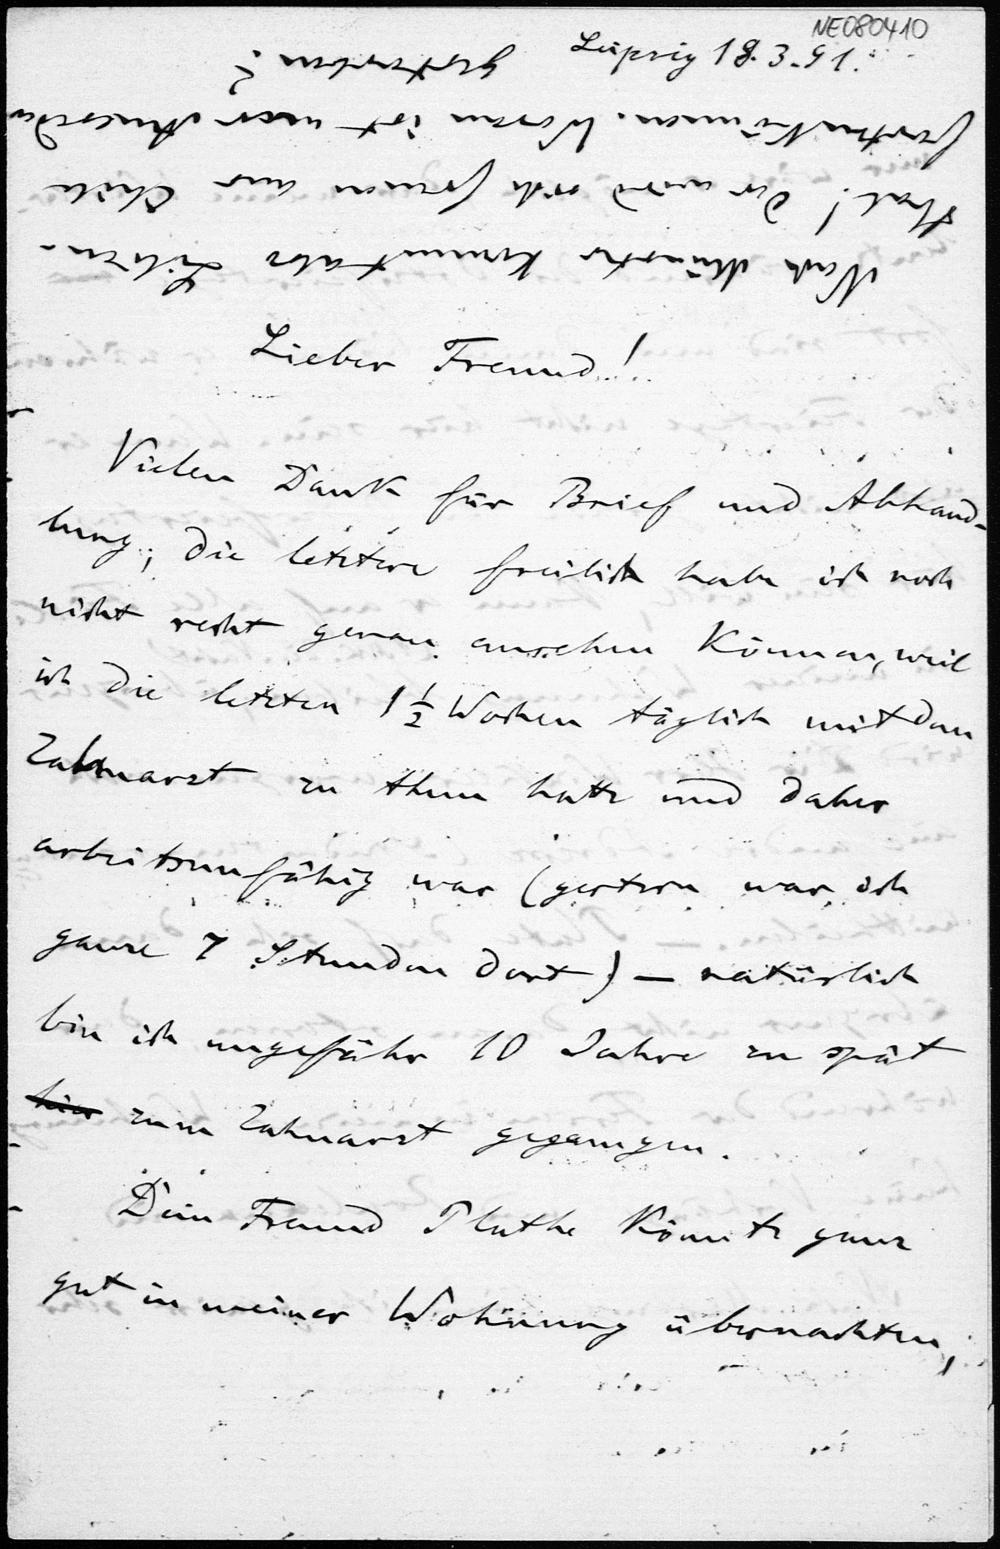 NE080410
Leipzig 18.3.91.
Lieber Freund!
Vielen Dank für Brief und Abhand-
lung; die letztere freilich habe ich noch
nicht recht genau ansehen können, weil
ich die letzten 1½ Wochen täglich mit dem
Zahnarzt zu thun hatte und daher
arbeitsunfähig war (gestern war ich
ganze 7 Stunden dort) — natürlich
bin ich ungefähr 10 Jahre zu spät
hier zum Zahnarzt gegangen.
Dein Freund Plathe könnte ganz
gut in meiner Wohnung übernachten,
Nach Münster kommt also
! Der wird sich freuen aus Chile
fortzukommen. Woran ist nur
gestorben?